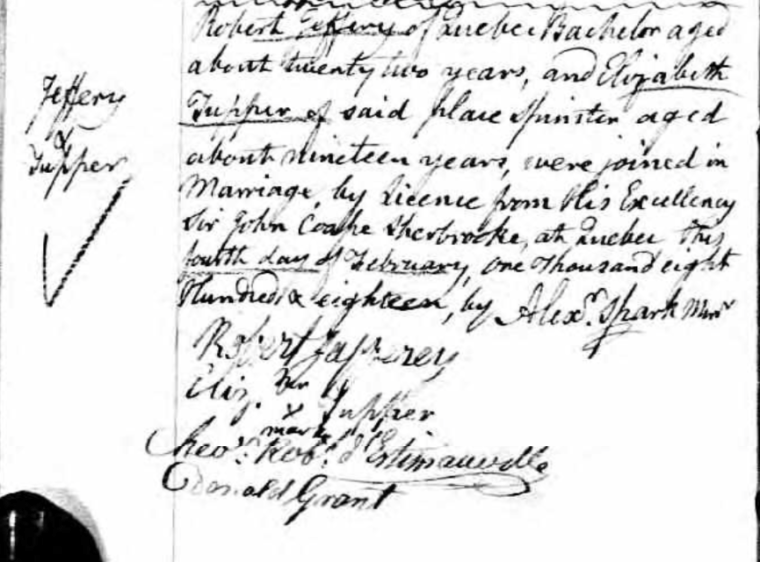 Jeffery
&
Tupper
Robert Jeffery of Quebec Bachelor aged
about twenty two years, and Elizabeth
Tupper of said place Spinster aged
about nineteen years, were joined in
Marriage, by Licence from His Excellency
Sir John Coape Sherbrooke, at Quebec this
fourth day of February, one thousand eight
Hundred & eighteen, by Alexr. Spark Minr
Robert Jafferey
Eliz. her
x Tupper
mark
Theo. Robt. d'Estimauville
Donald Grant